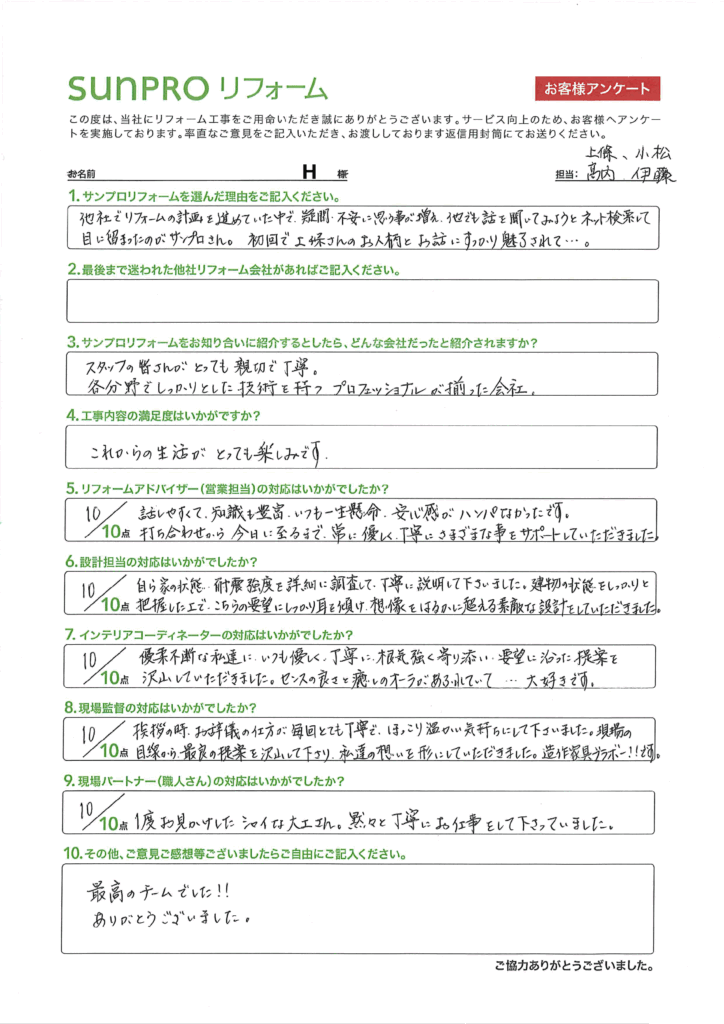 sunPRO リフォーム
お客様アンケート
この度は、当社にリフォーム工事をご用命いただき誠にありがとうございます。サービス向上のため、お客様へアンケー
トを実施しております。率直なご意見をご記入いただき、お渡ししております返信用封筒にてお送りください。
上條、小松
お名前 H 様 担当: 高内 伊藤
1. サンプロリフォームを選んだ理由をご記入ください。
他社でリフォームの計画を進めていた中で、疑問・不安に思う事が増え、他でも話を聞いてみようとネット検索して
目に留まったのがサンプロさん。初回で上條さんのお人柄とお話にすっかり魅了されて…。
2. 最後まで迷われた他社リフォーム会社があればご記入ください。
3. サンプロリフォームをお知り合いに紹介するとしたら、どんな会社だったと紹介されますか?
スタッフの皆さんが とっても 親切で丁寧。
各分野でしっかりとした技術を持つ プロフェッショナルが揃った会社。
4. 工事内容の満足度はいかがですか?
これからの生活が とっても楽しみです。
5. リフォームアドバイザー(営業担当)の対応はいかがでしたか?
10/10点 話しやすくて、知識も豊富、いつも一生懸命、安心感がハンパなかったです。
打ち合わせから今日に至るまで、常に優しく、丁寧にさまざまな事をサポートしていただきました。
6. 設計担当の対応はいかがでしたか?
10/10点 自ら家の状態、耐震強度を詳細に調査して、丁寧に説明して下さいました。建物の状態をしっかりと
把握した上で、こちらの要望にしっかり耳を傾け、想像をはるかに超える素敵な設計をしていただきました。
7. インテリアコーディネーターの対応はいかがでしたか?
10/10点 優柔不断な私達に、いつも優しく、丁寧に、根気強く寄り添い、要望に沿った提案を
沢山していただきました。センスの良さと癒しのオーラがあふれていて … 大好きです。
8. 現場監督の対応はいかがでしたか?
10/10点 挨拶の時、お辞儀の仕方が毎回とても丁寧で、ほっこり温かい気持ちにして下さいました。現場の
目線から、最良の提案を沢山して下さり、私達の想いを形にしていただきました。造作家具ブラボー!!です。
9. 現場パートナー(職人さん)の対応はいかがでしたか?
10/10点 1度お見かけした シャイな大工さん。黙々と丁寧にお仕事をして下さっていました。
10. その他、ご意見ご感想等ございましたらご自由にご記入ください。
最高のチームでした!!
ありがとうございました。
ご協力ありがとうございました。